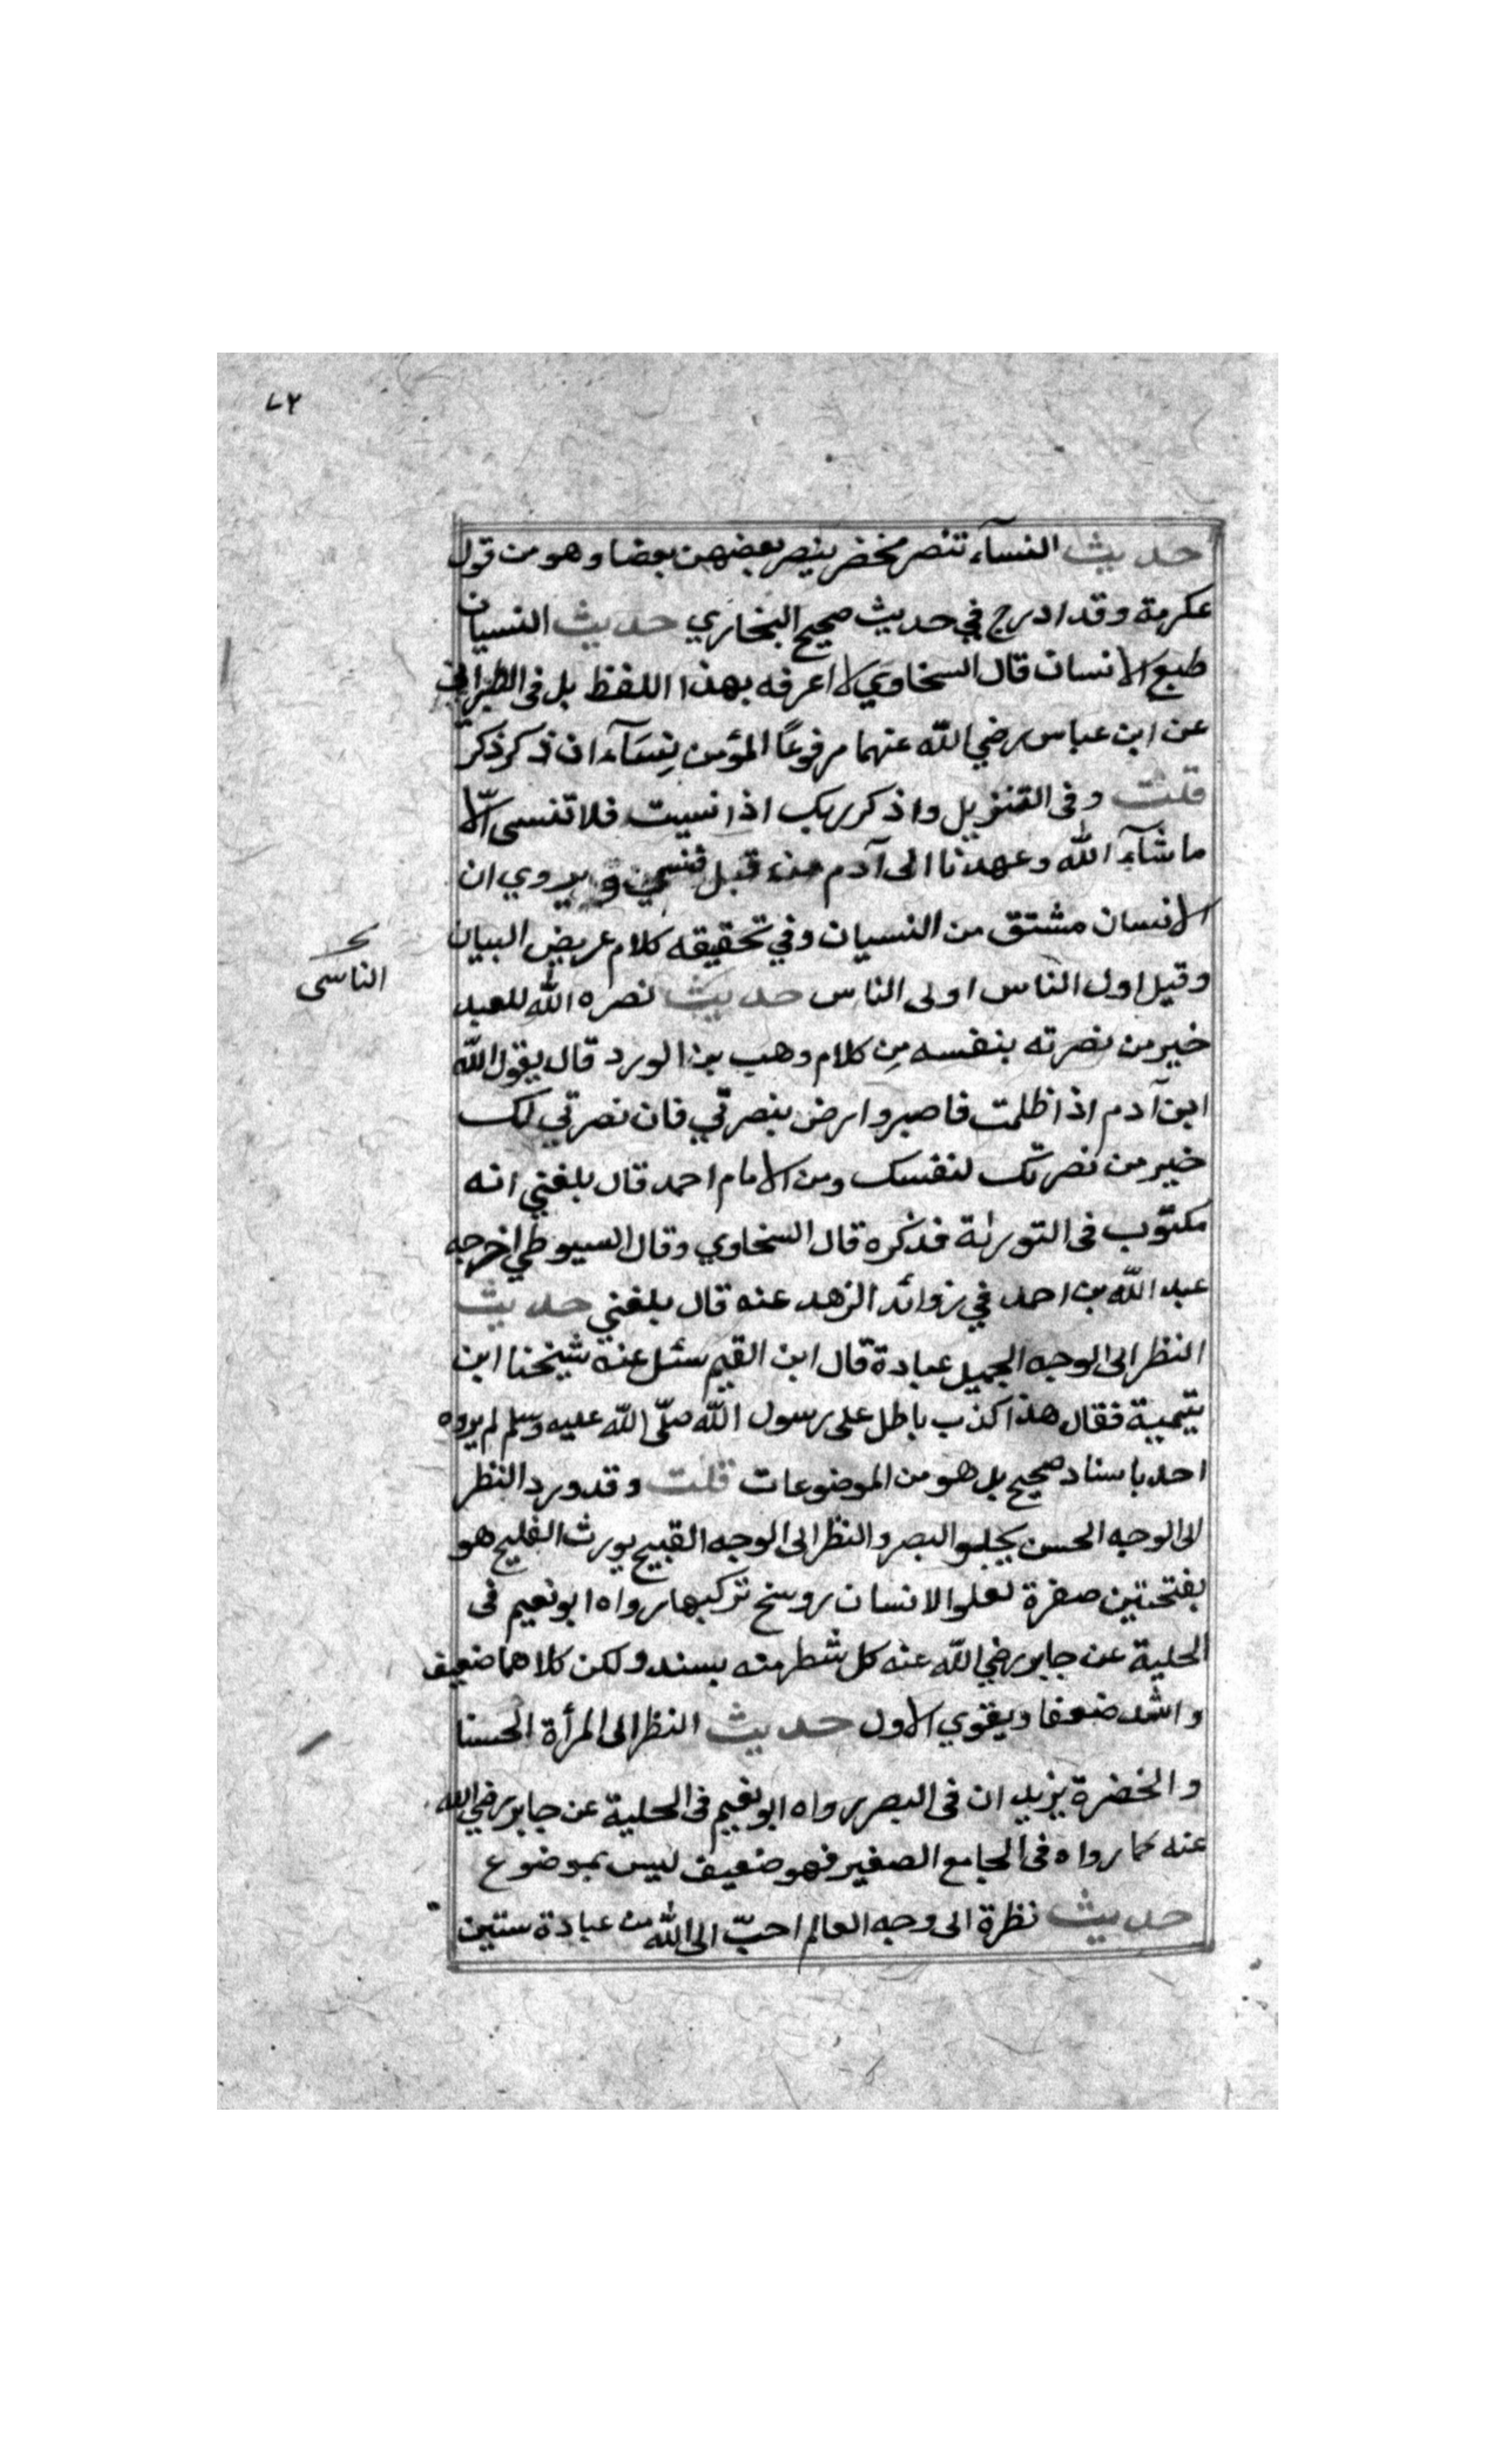 ٧٢
حديث النسآء تنصر مخضر ينصر بعضهن بعضا وهو من قول
عكرمة وقد ادرج في حديث صحيح البخاري حديث النسيان
طبع الانسان قال السخاوي لا اعرفه بهذا اللفظ بل فى الطبراني
عن ابن عباس رضي الله عنهما مرفوعًا المؤمن نِسَآء ان ذكر ذكر
قلت وفى التنزيل واذكر ربك اذا نسيت فلا تنسى الّا
ما شآء الله وعهدنا الى آدم من قبل فنسي ويروي ان
الانسان مشتق من النسيان وفي تحقيقه كلام عريض البيان
وقيل اول الناس اولى الناس حديث نصره الله للعبد
الناسى
خير من نصرته بنفسه مِن كلام وهب بن الورد قال يقول الله
ابن آدم اذا ظلمت فاصبر وارض بنصرتي فان نصرتي لك
خير من نصرتك لنفسك ومن الامام احمد قال بلغني انه
مكتوب فى التورٰىة فذكره قال السخاوي وقال السيوطي اخرجه
عبد الله بن احمد في زوائد الزهد عنه قال بلغني حديث
النظر الى الوجه الجميل عبادة قال ابن القيم سئل عنه شيخنا ابن
تيمية فقال هذا كذب باطل على رسول الله صلّى الله عليه وسلم لم يروه
احد باسناد صحيح بل هو من الموضوعات قلت وقد ورد النظر
الى الوجه الحسن يجلبوالبصر والنظر الى الوجه القبيح يورث الفليح هو
بفتحتين صفرة تعلوا الانسان روسخ تركبها رواه ابو نعيم فى
الحلية عن جابر رضي الله عنه كل شطر منه بسند ولكن كلاهما ضعيف
واشد ضعفا ويقوي الاول حديث النظر الى المرأة الحسنا
والخضرة يزيد ان فى البصر رواه ابو نعيم فى الحلية عن جابر رضي الله
عنه كما رواه فى الجامع الصغير فهو ضعيف ليس بموضوع
حديث نظرة الى وجه العالم احبّ الى الله من عبادة ستين